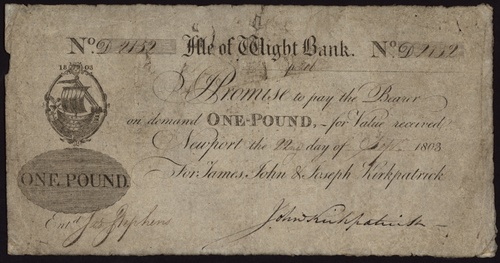 No D 2152 Isle of Wight Bank. No D 2152
1803
I Promise to pay the Bearer
on demand ONE-POUND, for Value received
Newport the 22 day of 1803
ONE POUND.
For James, John & Joseph Kirkpatrick
Entd Js Stephens
John Kirkpatrick